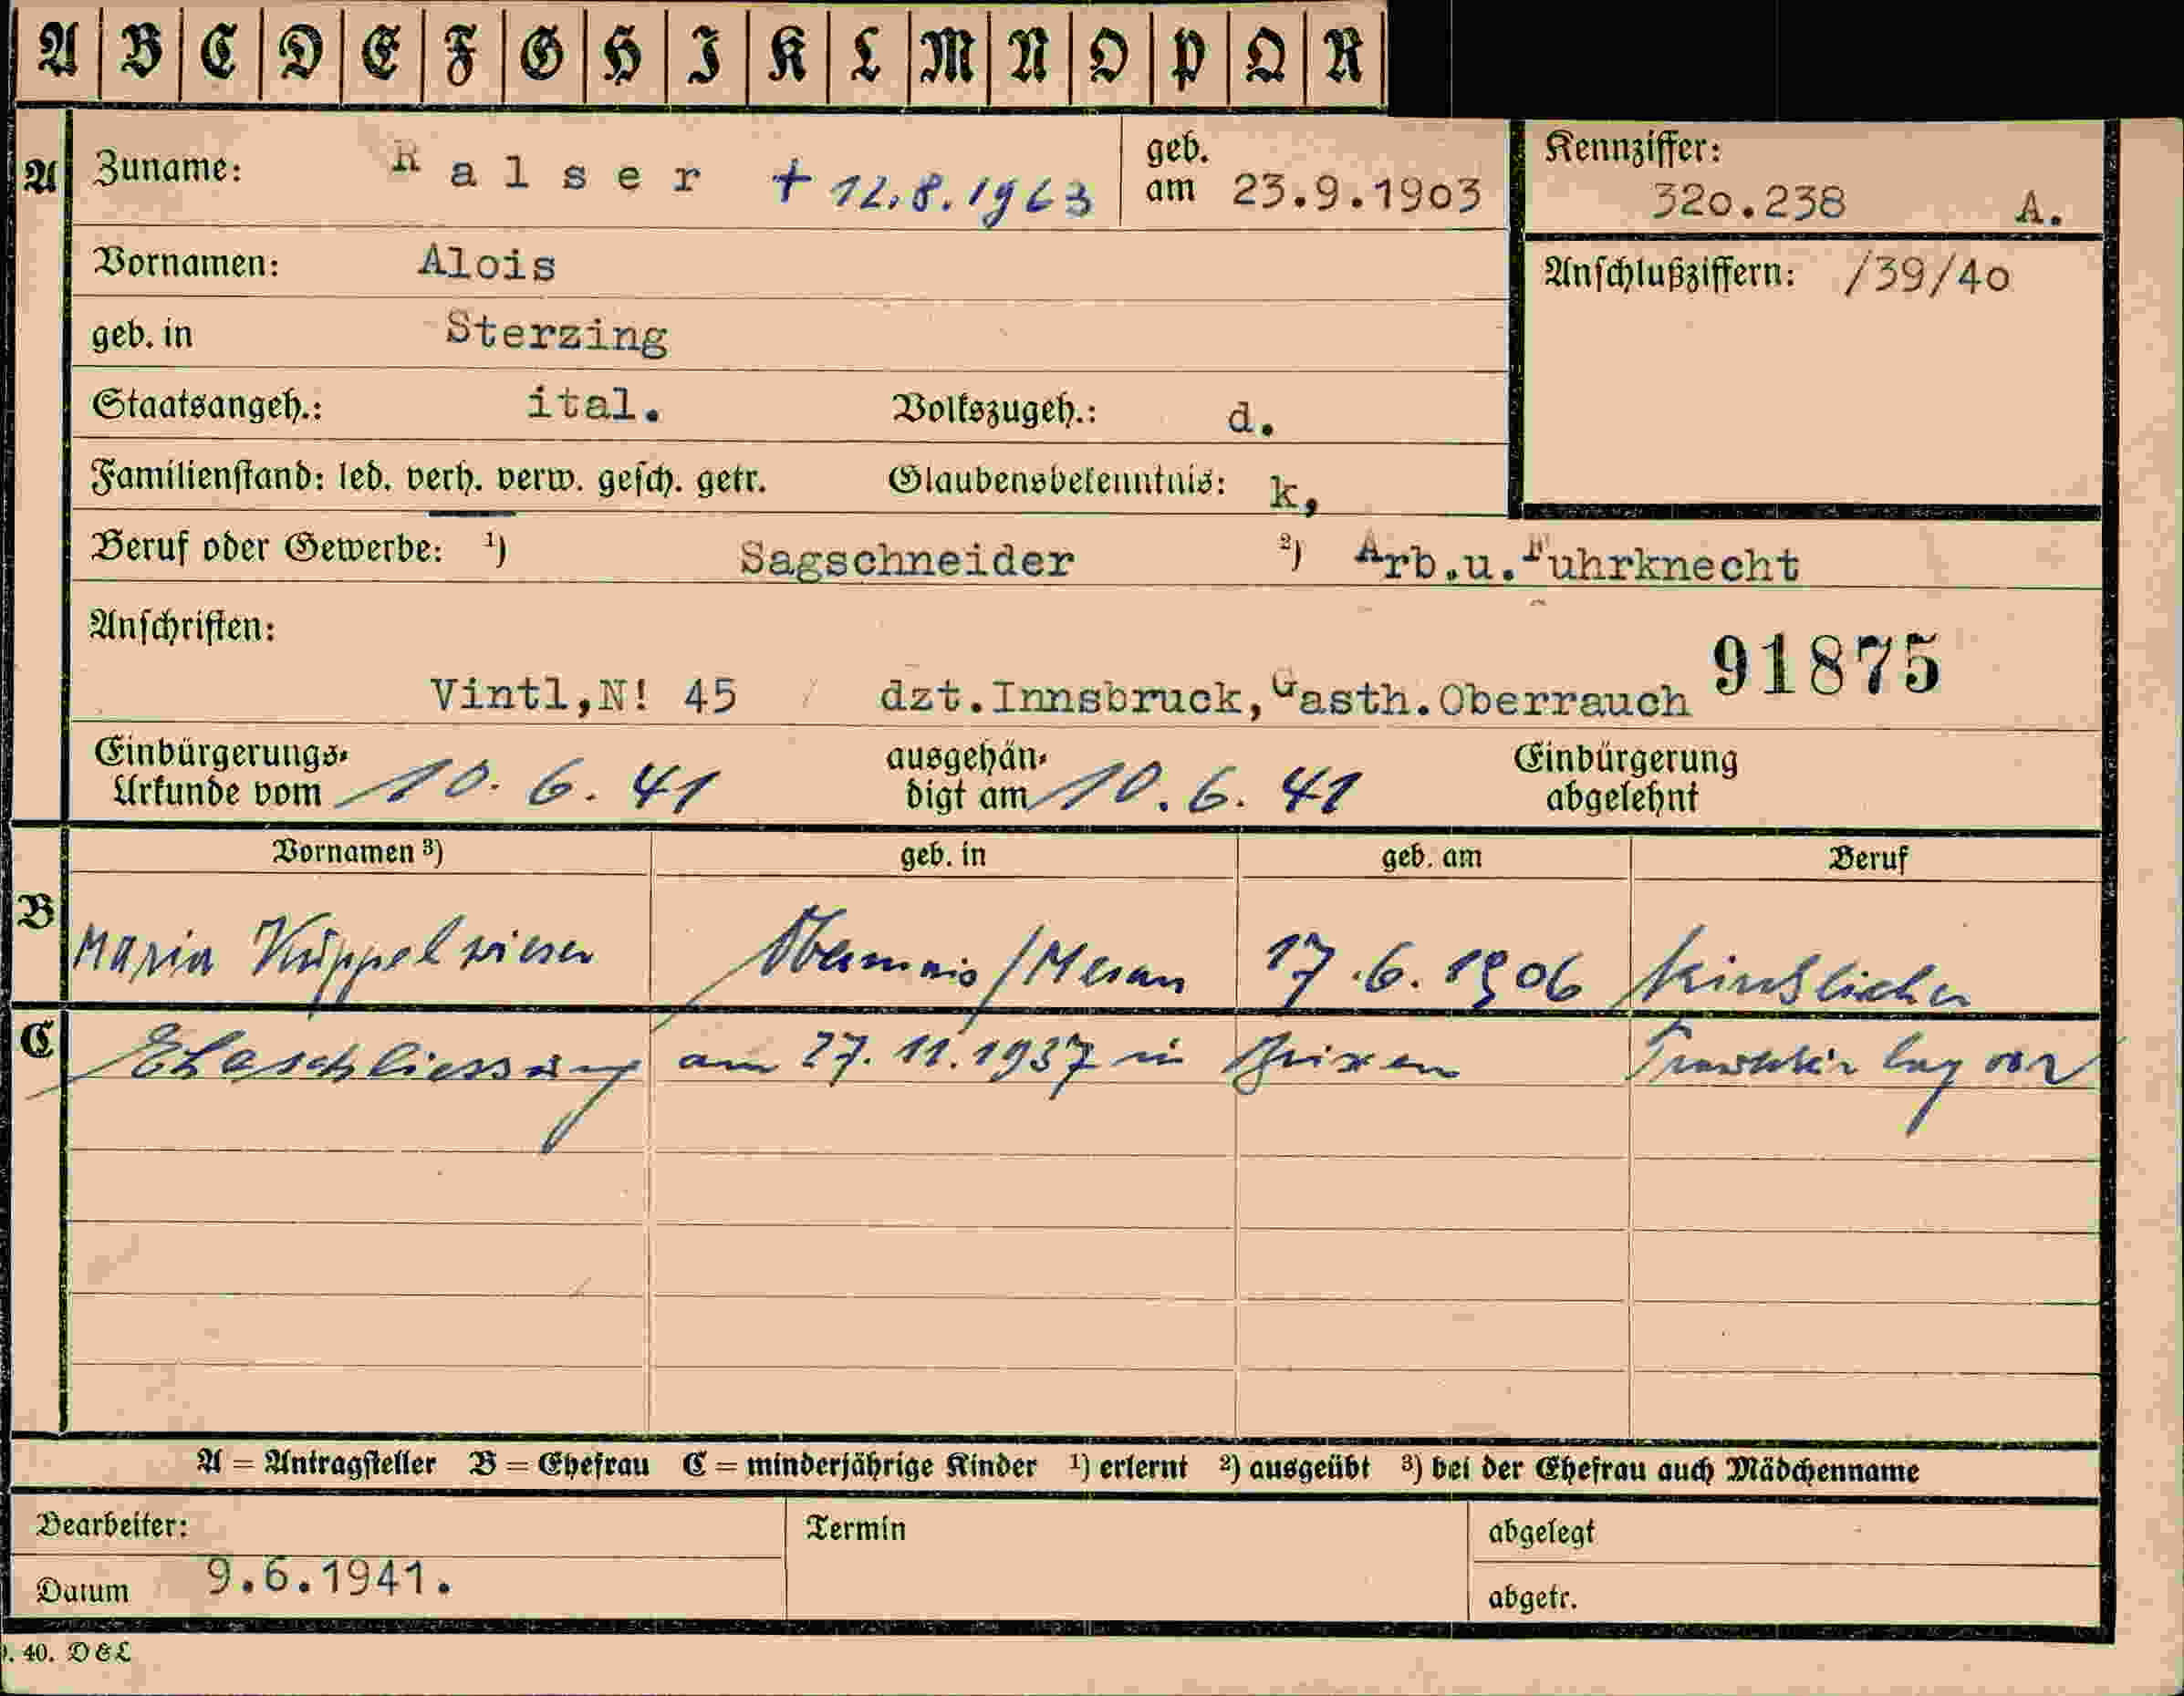 A B C D E F G H I K L M N O P Q R
A Zuname: Ralser + 12.8.1963 geb. am 23.9.1903 Kennziffer: 320.238 A.
Vornamen: Alois Anschlußziffern: /39/40
geb. in Sterzing
Staatsangeh.: ital. Volkszugeh.: d.
Familienstand: led. verh. verw. gesch. getr. Glaubensbekenntnis: k,
Beruf oder Gewerbe: ¹) Sagschneider ²) Arb.u.Fuhrknecht
Anschriften:
91875
Vintl,N! 45 dzt.Innsbruck,Gasth.Oberrauch
Einbürgerungs-Urkunde vom 10.6.41 ausgehändigt am 10.6.41 Einbürgerung abgelehnt
Vornamen ³) geb. in geb. am Beruf
B Maria Küppelwieser Obermais/Meran 17.6.1906 kirchlicher
C Eheschliessung am 27.11.1937 in Brixen Trauschein lag vor
A = Antragsteller B = Ehefrau C = minderjährige Kinder ¹) erlernt ²) ausgeübt ³) bei der Ehefrau auch Mädchenname
Bearbeiter: Termin abgelegt
Datum 9.6.1941. abgetr.
40. DEL